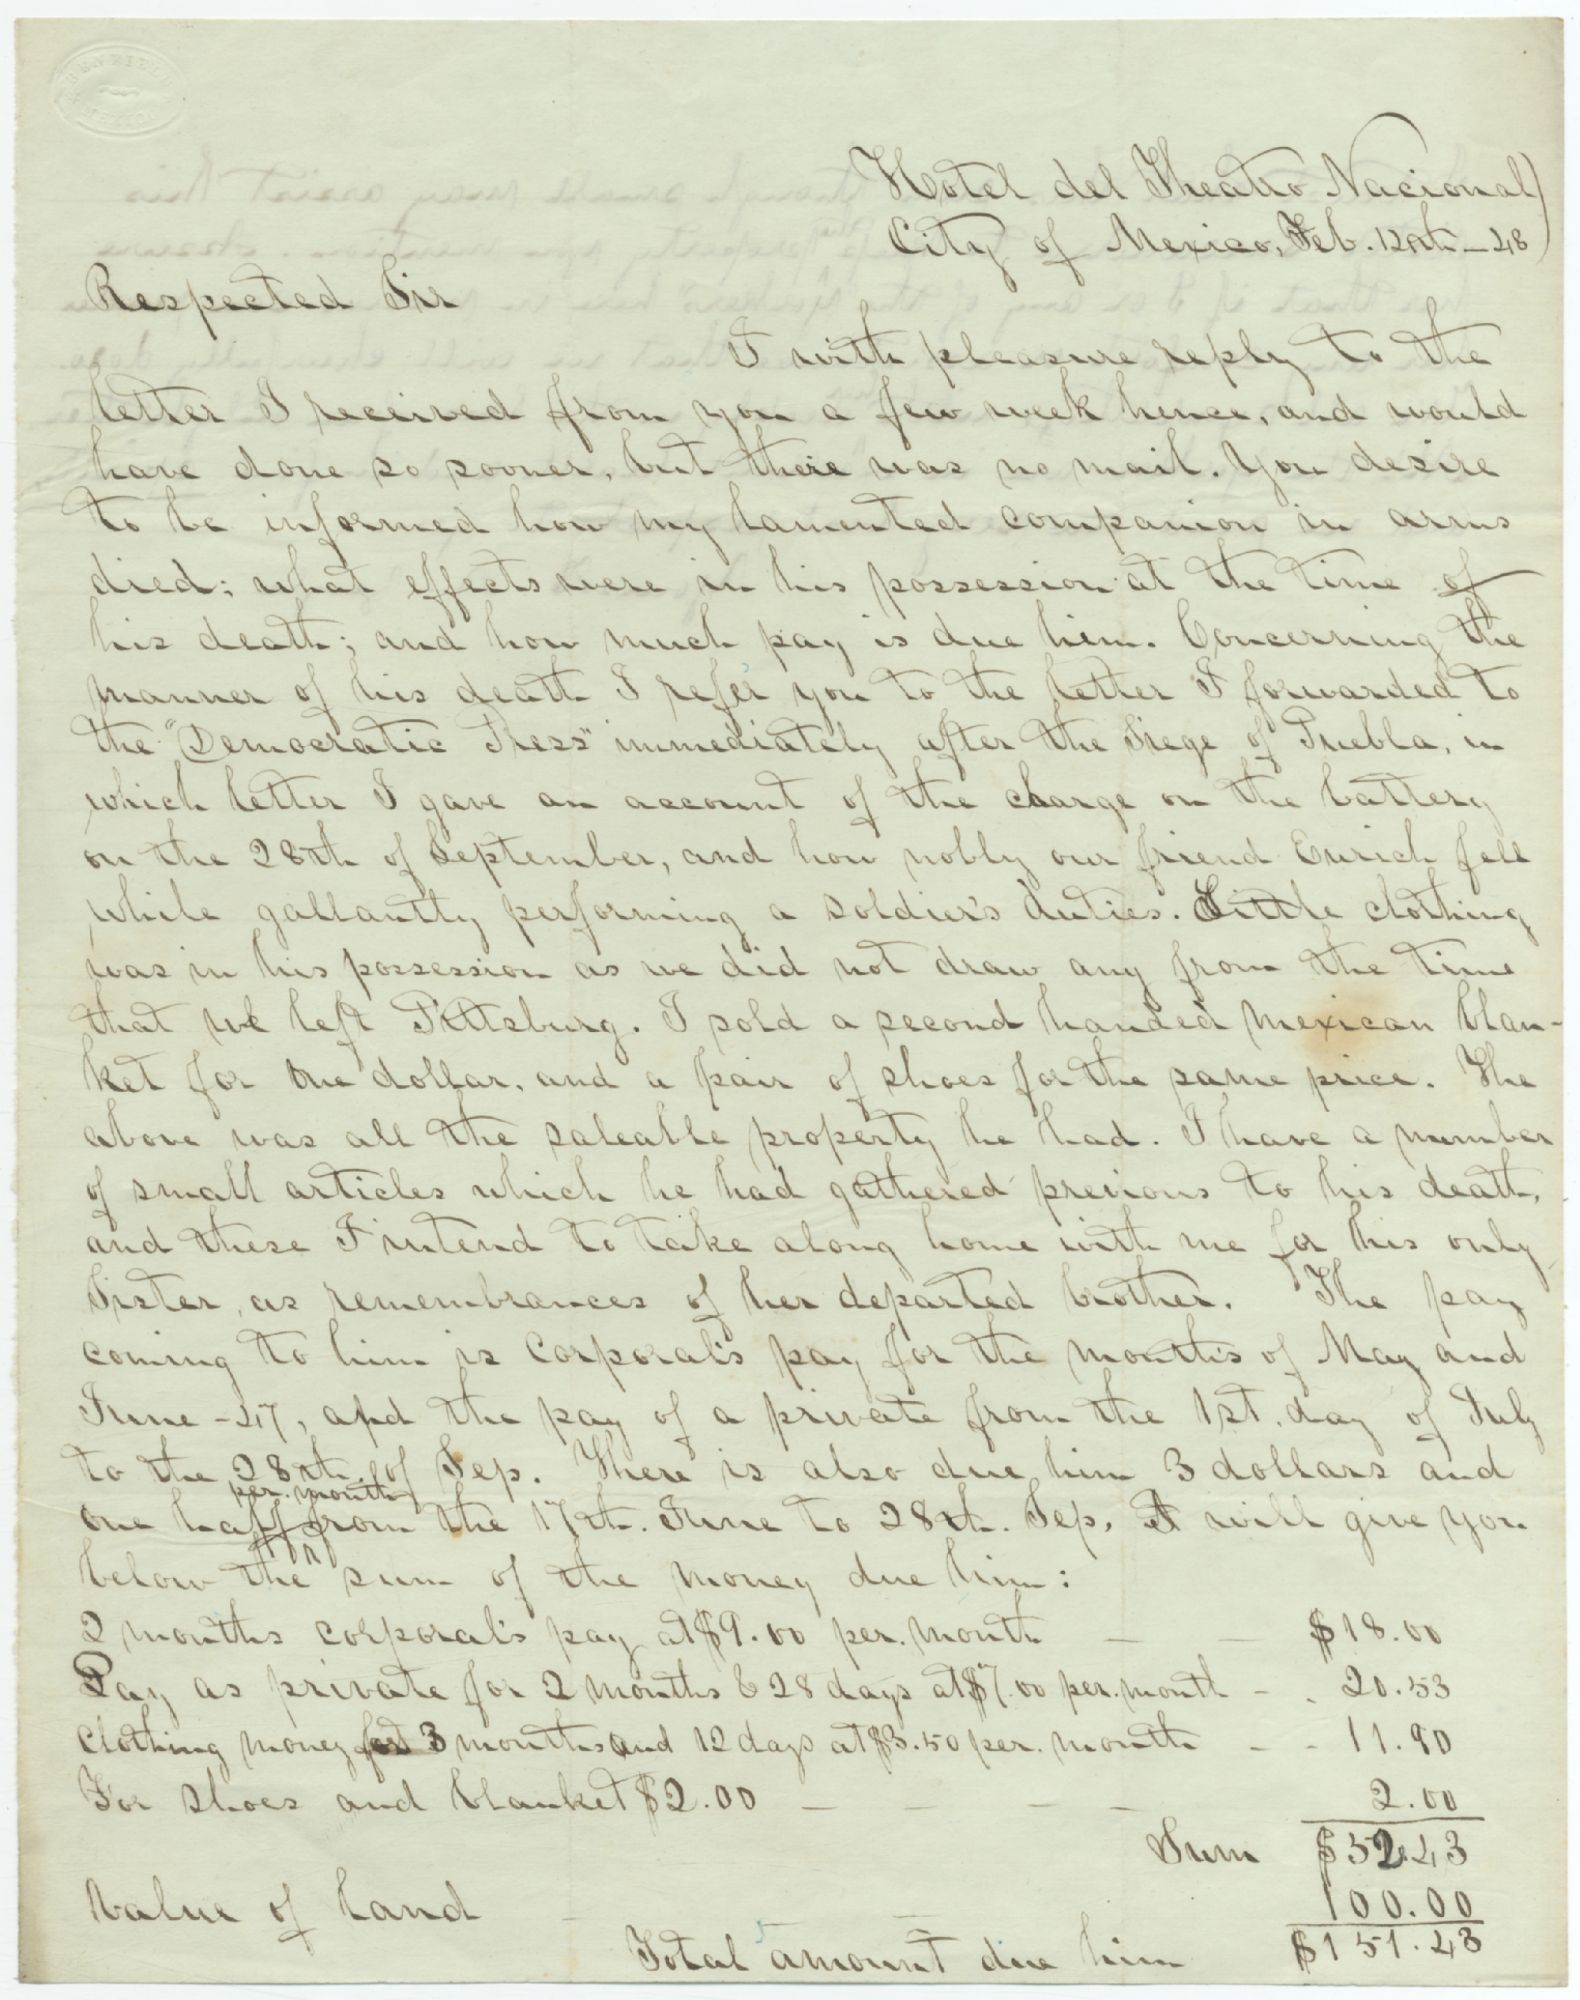 Hotel del Theatro Nacional)
City of Mexico, Feb. 12th - 48
Respected Sir
I with pleasure reply to the
letter I received from you a few week hence, and would
have done so sooner, but there was no mail. You desire
to be informed how my lamented companion in arms
died; what effects were in his possession at the time of
his death; and how much pay is due him. Concerning the
manner of his death I refer you to the letter I forwarded to
the "Democratic Press" immediately after the Siege of Puebla, in
which letter I gave an account of the charge on the battery
on the 28th of September, and how nobly our friend Eurich fell
while gallantly performing a soldier's duties. Little clothing
was in his possession as we did not draw any from the time
that we left Pittsburg. I sold a second handed Mexican blan-
ket for one dollar, and a pair of shoes for the same price. The
above was all the saleable property he had. I have a number
of small articles which he had gathered previous to his death,
and these I intend to take along home with me for his only
Sister, as remembrances of her departed brother. The pay
coming to him is Corporal's pay for the months of May and
June -47, and the pay of a private from the 1st. day of July
to the 28th. of Sep. There is also due him 3 dollars and
per. month
one half from the 17th. June to 28th. Sep. I will give you
below the sum of the money due him:
2 months corporal's pay at $9.00 per. month — — $18.00
Pay as private for 2 months & 28 days at $7.00 per. month - - 20.53
Clothing money for 3 months and 12 days at $3.50 per. month - - 11.90
For shoes and blanket $2.00 — — — — 2.00
Sum $52.43
Value of land — — 100.00
Total amount due him $151.43